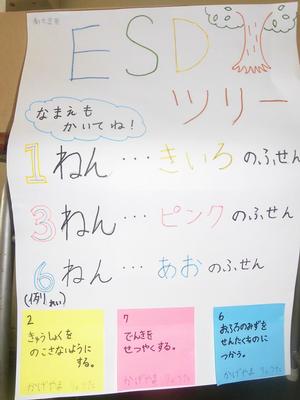 ESD
ツリー
なまえも
かいてね!
1ねん…きいろのふせん
3ねん…ピンクのふせん
6ねん…あおのふせん
(例)れい
2
きゅうしょくを
のこさないように
する。
かげやま りょうた
7
でんきを
せつやくする。
かげやま りょうた
6
おふろのみずを
せんたくものに
つかう。
かげやま りょうた